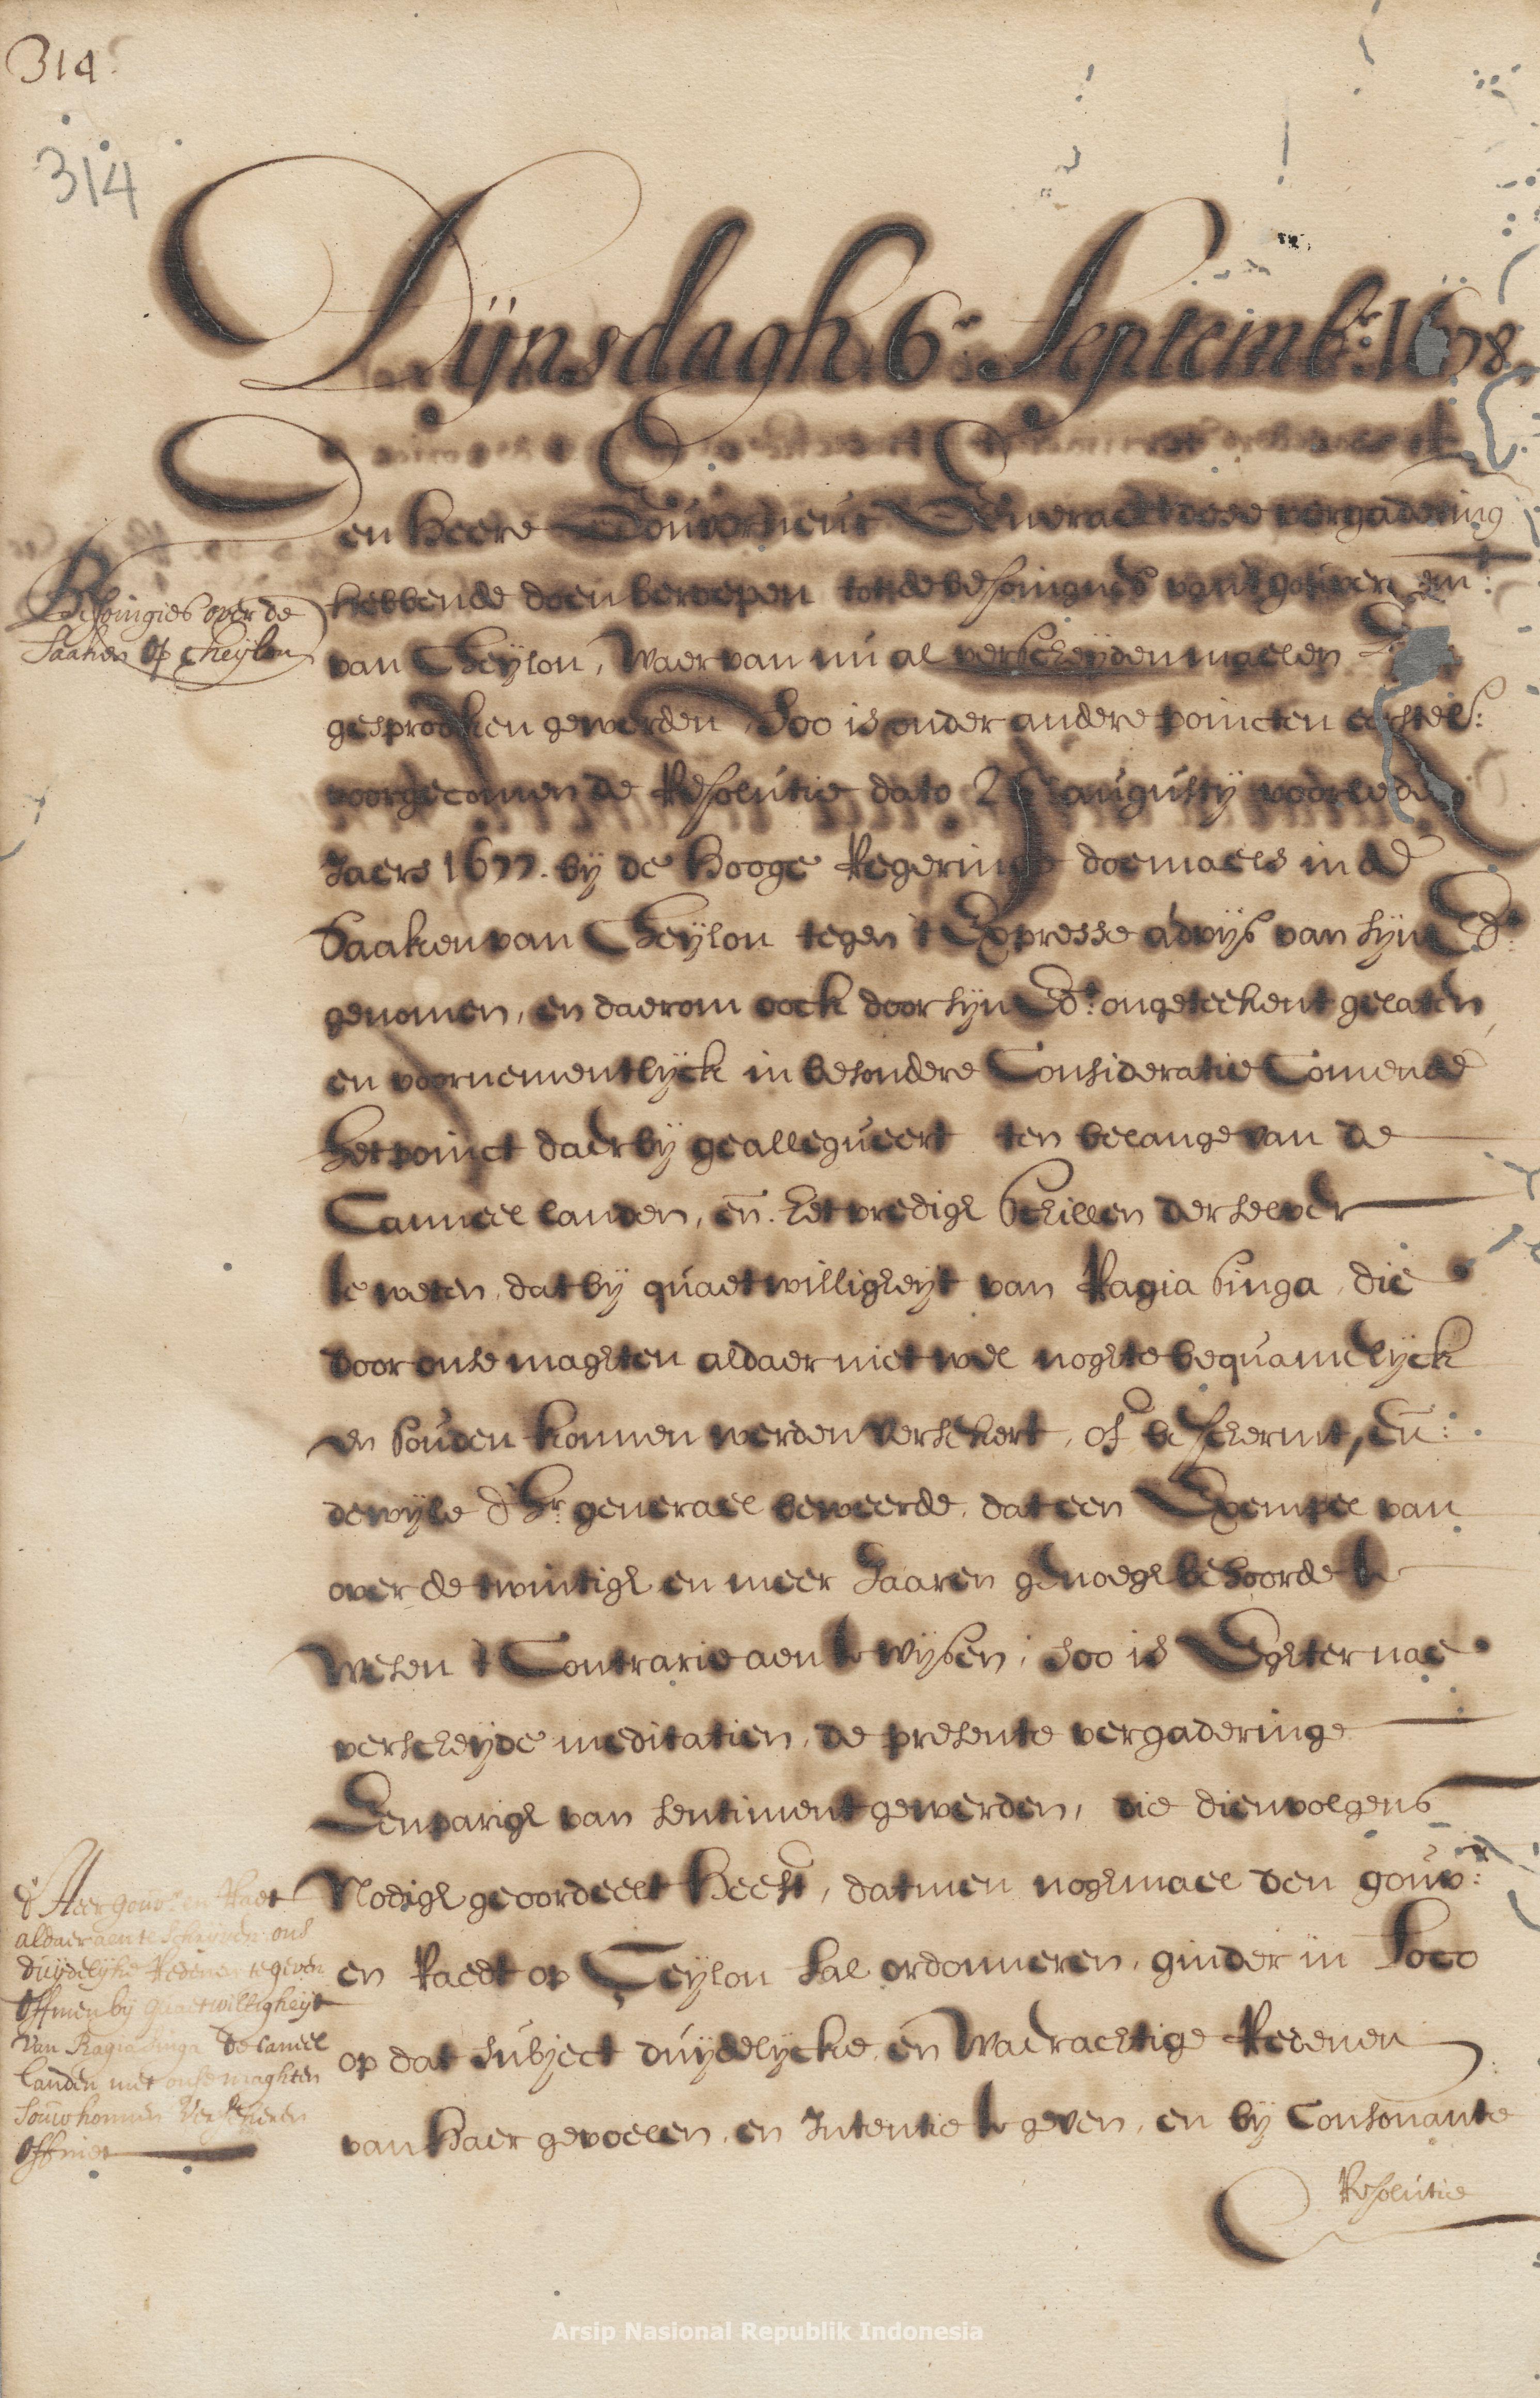 314
314
Dijnsdagh 6en: Septemb:r 1678.
Den Heere Gouverneur Generael dese vergadering
Besoingies over de
Saaken op Cheijlon
hebbende doen beroepen tot de besoignes van 't gouvern em:
van Cheijlon, waer van nu al verscheijden maelen
gesprooken geworden, Soo is onder andere poincten eerstel:
voorgecomen de Resolutie dato augusty voorleden
Jaers 1677. bij de Hooge Regeringe doemaels in de
Saaken van Cheijlon tegen 't Expresse advijs van sijn Ed:
genomen, en daerom oock door sijn Ed: ongeteekent gelaten,
en voornementlijck in besondere Consideratie Comende
het poinct daer bij geallegueert ten belange van de
Canneel landen, en. het vredigh schillen derselver
te weten, dat bij quaetwilligheijt van Ragia Singa, die
door onse maghten aldaer niet wel nogh te bequamelijck
en souden konnen werden versekert, of beschermt, en:
dewijle d' Hr: generael beweerde, dat een Exempel van
over de twintigh en meer Jaaren genoegh behoorde te
wesen 't Contrarie aen te wijsen; soo is Eghter nae
verscheijde meditatien, de presente vergaderinge
Eenparigh van sentiment geworden, die dienvolgens
Nodigh geoordeelt heeft, datmen noghmael den gouvr:
en Raedt op Ceijlon sal ordonneren, ginder in Loco
op dat subject duijdelijcke en waerachtige Redenen
van haer gevoelen, en Intentie te geven, en bij Consonante
d' Heer gouvr: en Raet
aldaer aen te schrijven ons
duijdelijke Redenen te geven
Off men bij quaetwilligheijt
van Ragia Singa de caneel
landen met onse maghten
souw konnen Versekeren
Off niet
Resolutie
Arsip Nasional Republik Indonesia